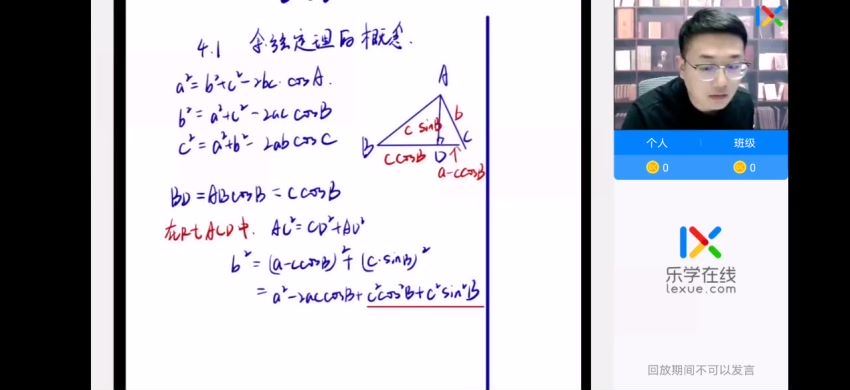 4.1 余弦定理的概念.
a²=b²+c²-2bc·cosA.
b²=a²+c²-2ac cosB
c²=a²+b²-2abcosC
A
b
c sinB
B
C
ccosB
D
a-ccosB
BD=ABcosB=ccosB
在Rt ACD中. AC²=CD²+AD²
b²=(a-ccosB)²+(c·sinB)²
=a²-2accosB+c²cos²B+c²sin²B
个人 班级
0 0
乐学在线
lexue.com
回放期间不可以发言